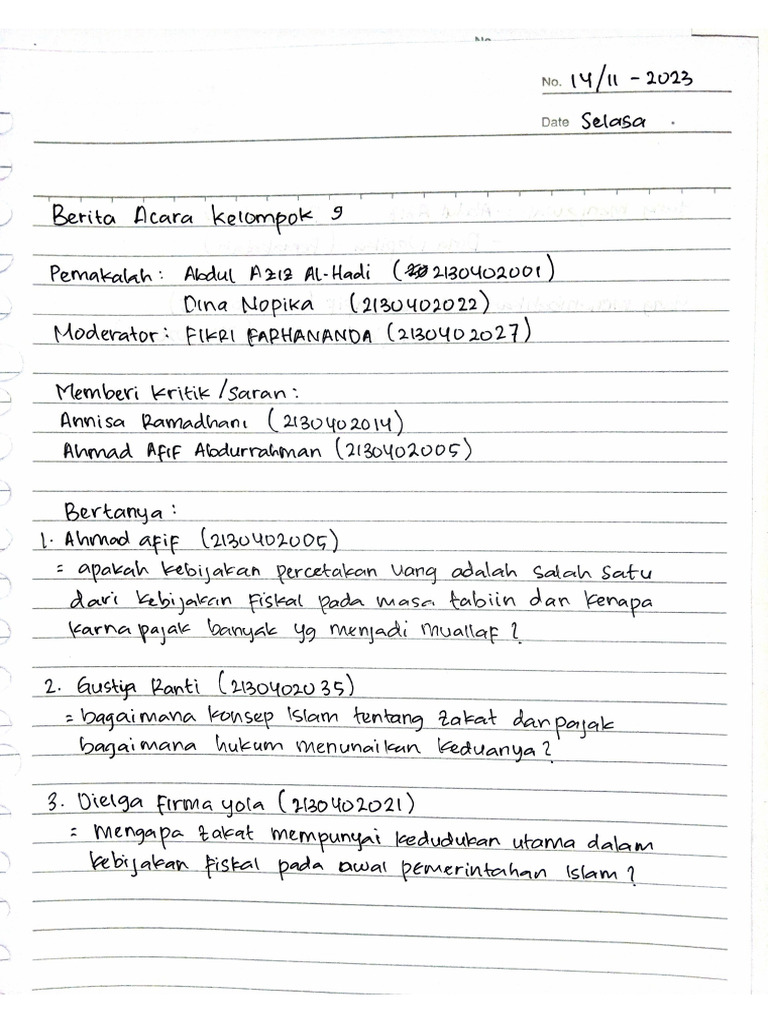 No. 14/11 - 2023
Date Selasa
Berita Acara Kelompok 9
Pemakalah : Abdul Aziz Al-Hadi (2130402001)
Dina Nopika (2130402022)
Moderator : FIKRI FARHANANDA (2130402027)
Memberi kritik / Saran :
Annisa Ramadhani (2130402014)
Ahmad Afif Abdurrahman (2130402005)
Bertanya :
1. Ahmad afif (2130402005)
= apakah kebijakan percetakan uang adalah salah satu
dari kebijakan fiskal pada masa tabiin dan kenapa
karna pajak banyak yg menjadi muallaf ?
2. Gustya Ranti (2130402035)
= bagaimana konsep Islam tentang zakat dan pajak
bagaimana hukum menunaikan keduanya ?
3. Dielga firma yola (2130402021)
= mengapa zakat mempunyai kedudukan utama dalam
kebijakan fiskal pada awal pemerintahan Islam ?